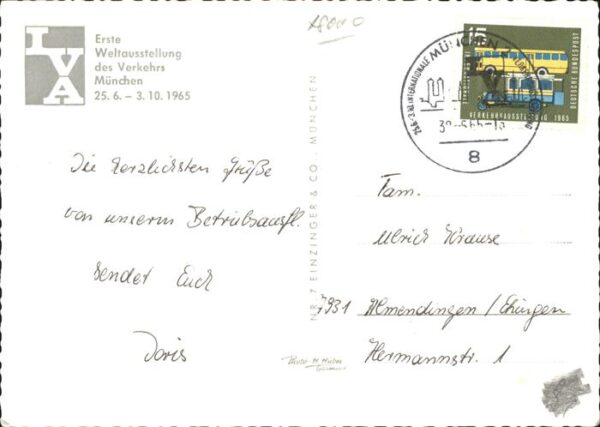 IVA
Erste
Weltausstellung
des Verkehrs
München
25. 6. – 3. 10. 1965
Die herzlichsten Grüße
von unserm Betriebsausfl.
sendet Euch
Doris
NR. 7 EINZINGER & CO., MÜNCHEN
15
DEUTSCHE BUNDESPOST
VERKEHRSAUSSTELLUNG 1965
MÜNCHEN
INTERNATIONALE
8
Fam.
Ulrich Krause
7931 Allmendingen / Ehingen
Hermannstr. 1